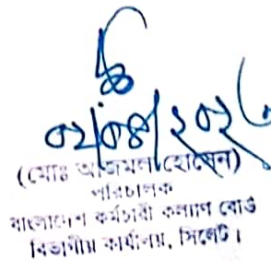 ০২/০৪/২০২
(মোঃ আজমল হোসেন)
পরিচালক
বাংলাদেশ কর্মচারী কল্যাণ বোর্ড
বিভাগীয় কার্যালয়, সিলেট।